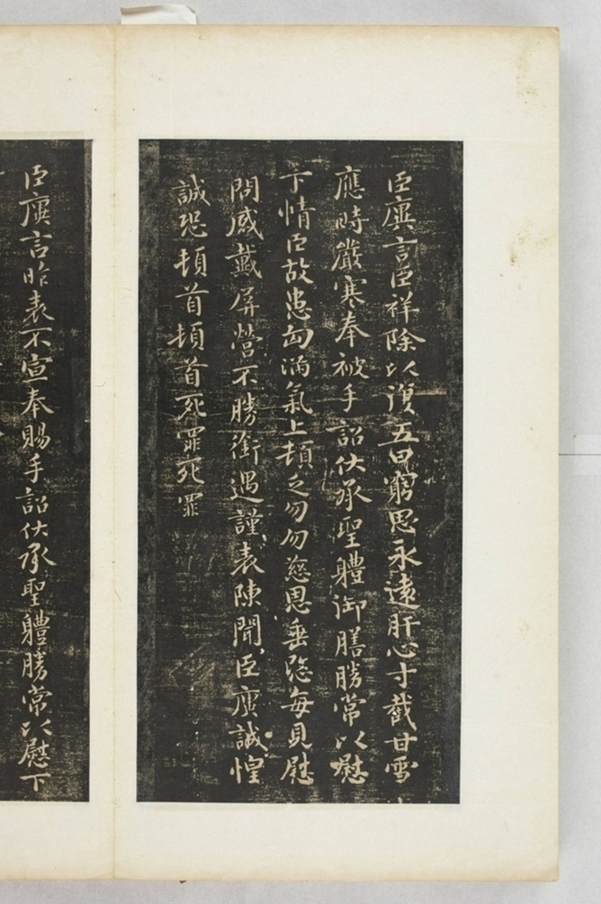 臣廙言臣祥除以復五日窮思永遠肝心寸截甘雪
應時嚴寒奉被手詔伏承聖體御膳勝常以慰
下情臣故患匈滿氣上頓乏勿勿慈恩垂愍每見慰
問感戴屏營不勝銜遇謹表陳聞臣廙誠惶
誠恐頓首頓首死罪死罪
臣廙言昨表不宣奉賜手詔伏承聖體勝常以慰下